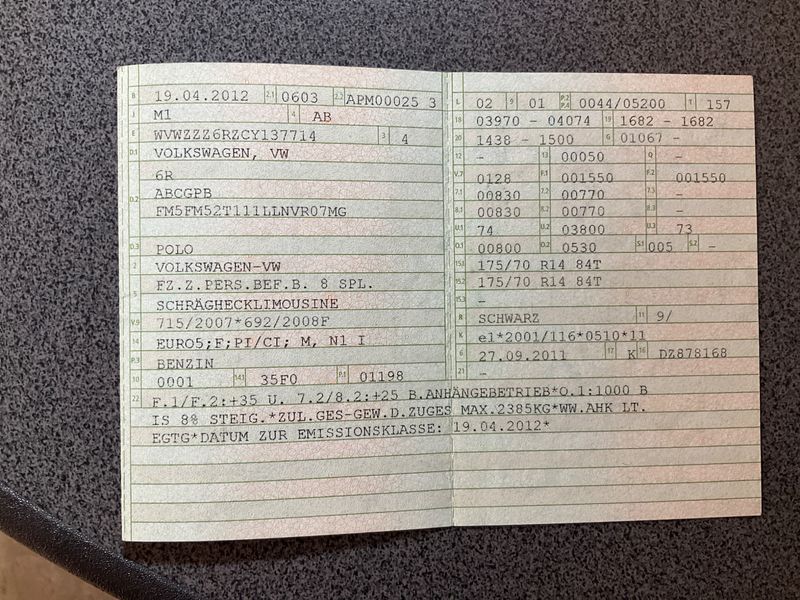 B 19.04.2012 2.1 0603 2.2 APM00025 3
J M1 4 AB
E WVWZZZ6RZCY137714 3 4
D.1 VOLKSWAGEN, VW
6R
D.2 ABCGPB
FM5FM52T111LLNVR07MG
D.3 POLO
2 VOLKSWAGEN-VW
5 FZ.Z.PERS.BEF.B. 8 SPL.
SCHRÄGHECKLIMOUSINE
V.9 715/2007*692/2008F
14 EURO5;F;PI/CI; M, N1 I
P.3 BENZIN
10 0001 14.1 35F0 P.1 01198
L 02 9 01 P.2 P.4 0044/05200 T 157
18 03970 - 04074 19 1682 - 1682
20 1438 - 1500 G 01067 -
12 - 13 00050 Q -
V.7 0128 F.1 001550 F.2 001550
7.1 00830 7.2 00770 7.3 -
8.1 00830 8.2 00770 8.3 -
U.1 74 U.2 03800 U.3 73
O.1 00800 O.2 0530 S.1 005 S.2 -
15.1 175/70 R14 84T
15.2 175/70 R14 84T
15.3 -
R SCHWARZ 11 9/
K e1*2001/116*0510*11
6 27.09.2011 17 K 16 DZ878168
21 -
22 F.1/F.2:+35 U. 7.2/8.2:+25 B.ANHÄNGEBETRIEB*O.1:1000 B
IS 8% STEIG.*ZUL.GES-GEW.D.ZUGES MAX.2385KG*WW.AHK LT.
EGTG*DATUM ZUR EMISSIONSKLASSE: 19.04.2012*